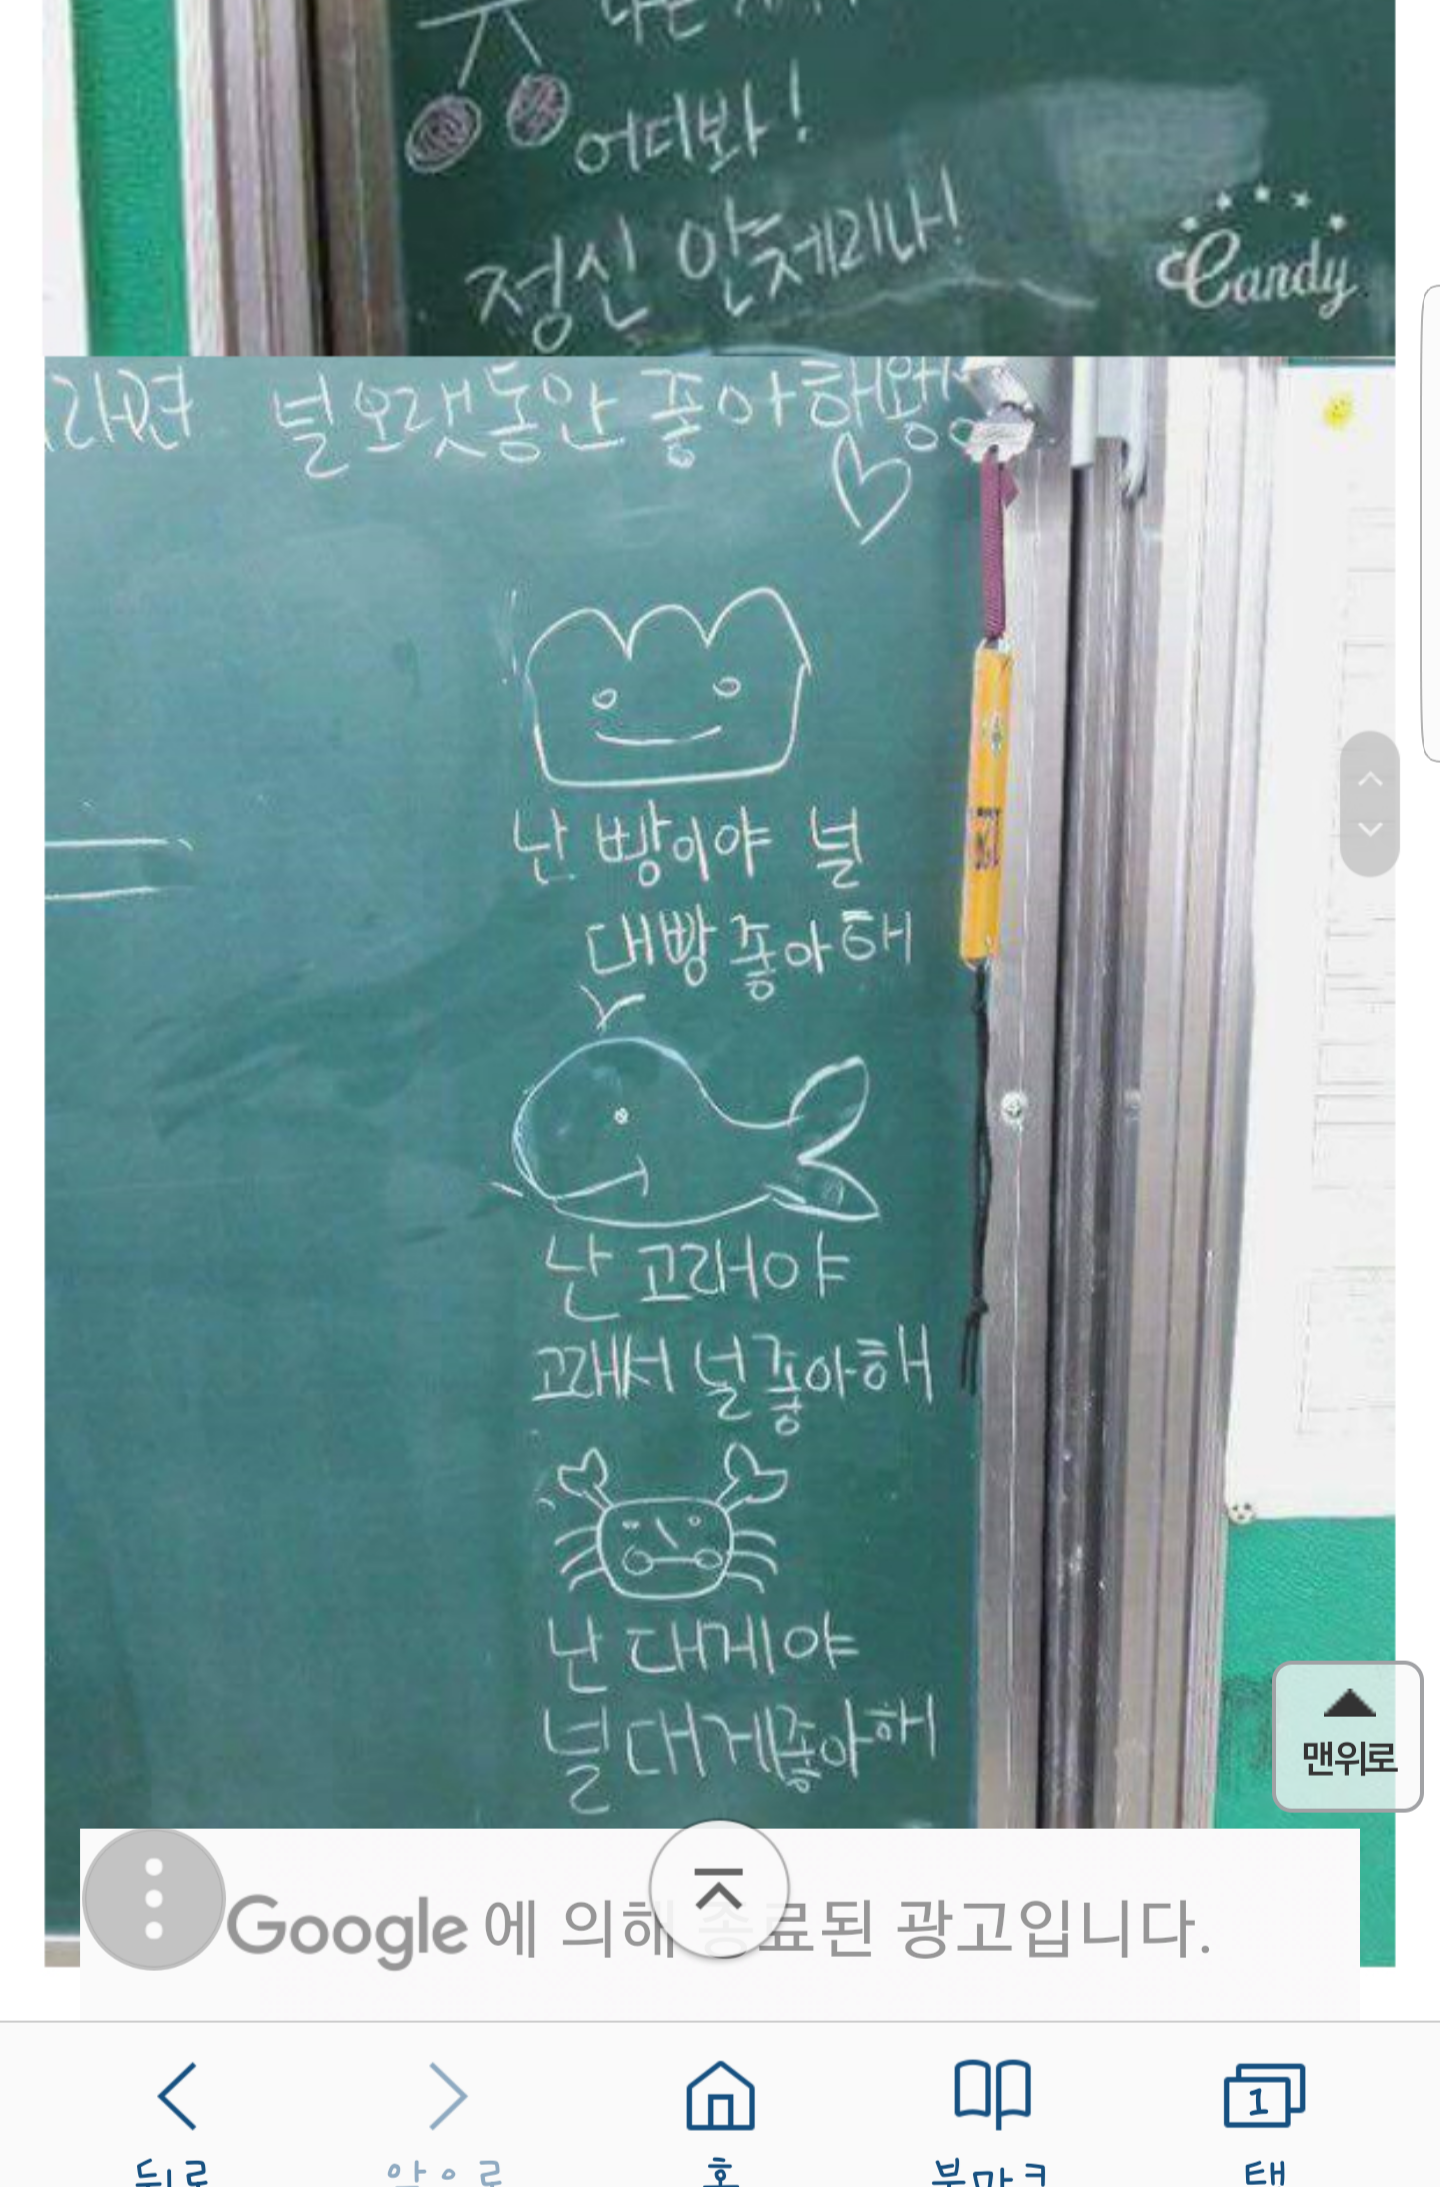 나는
어디봐!
정신 안체리나!
Candy
널 오랫동안 좋아해왕
난 빵이야 널
대빵 좋아해
난 고래야
고래서 널 좋아해
난 대게야
널 대게 좋아해
맨위로
Google 에 의해 종료된 광고입니다.
1
뒤로 앞으로 홈 북마크 탭